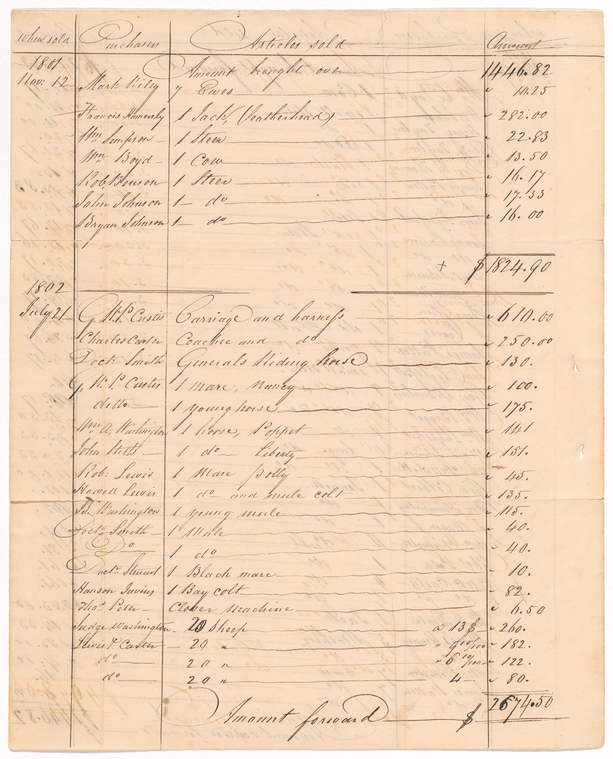 when sold Purchasers Articles sold Amount
1801 Amount brought over 1446.82
Novr 12 Mark Risley 7 Ewes " 10.25
Francis 1 Jack (Leatherhead) " 282.00
Wm Simpson 1 Steer " 22.83
Wm Boyd 1 Cow " 13.50
Rob Benson 1 Steer " 16.17
John Johnson 1 do " 17.33
Bryan Johnson 1 do " 16.00
+ $1824.90
1802
July 21 G. W. P. Custis Carriage and harness " 610.00
Charles Carter Coachee and do " 250.00
Doctr Smith Generals Riding horse " 130.
G. W. P. Custis 1 mare, Nancy " 100.
ditto 1 young horse " 175.
Wm A. Washington 1 horse, Poppet " 141
John Stith 1 do Liberty " 151.
Robt Lewis 1 Mare Polly " 45.
Howell Lewis 1 do and mule colt " 135.
B. Washington 1 young mule " 115.
Doctr Smith 1 Mule " 40.
Do 1 do " 40.
Doctr Stuart 1 Black mare " 10.
Hanson 1 Bay colt " 82.
Thos Peter Clover Machine " 6.50
Judge Washington 20 Sheep a 13$ " 260.
Carter 20 " " 9 10/100 " 182.
do 20 " " 6 10/100 " 122.
do 20 " 4 " 80.
Amount forward $ 2674.50